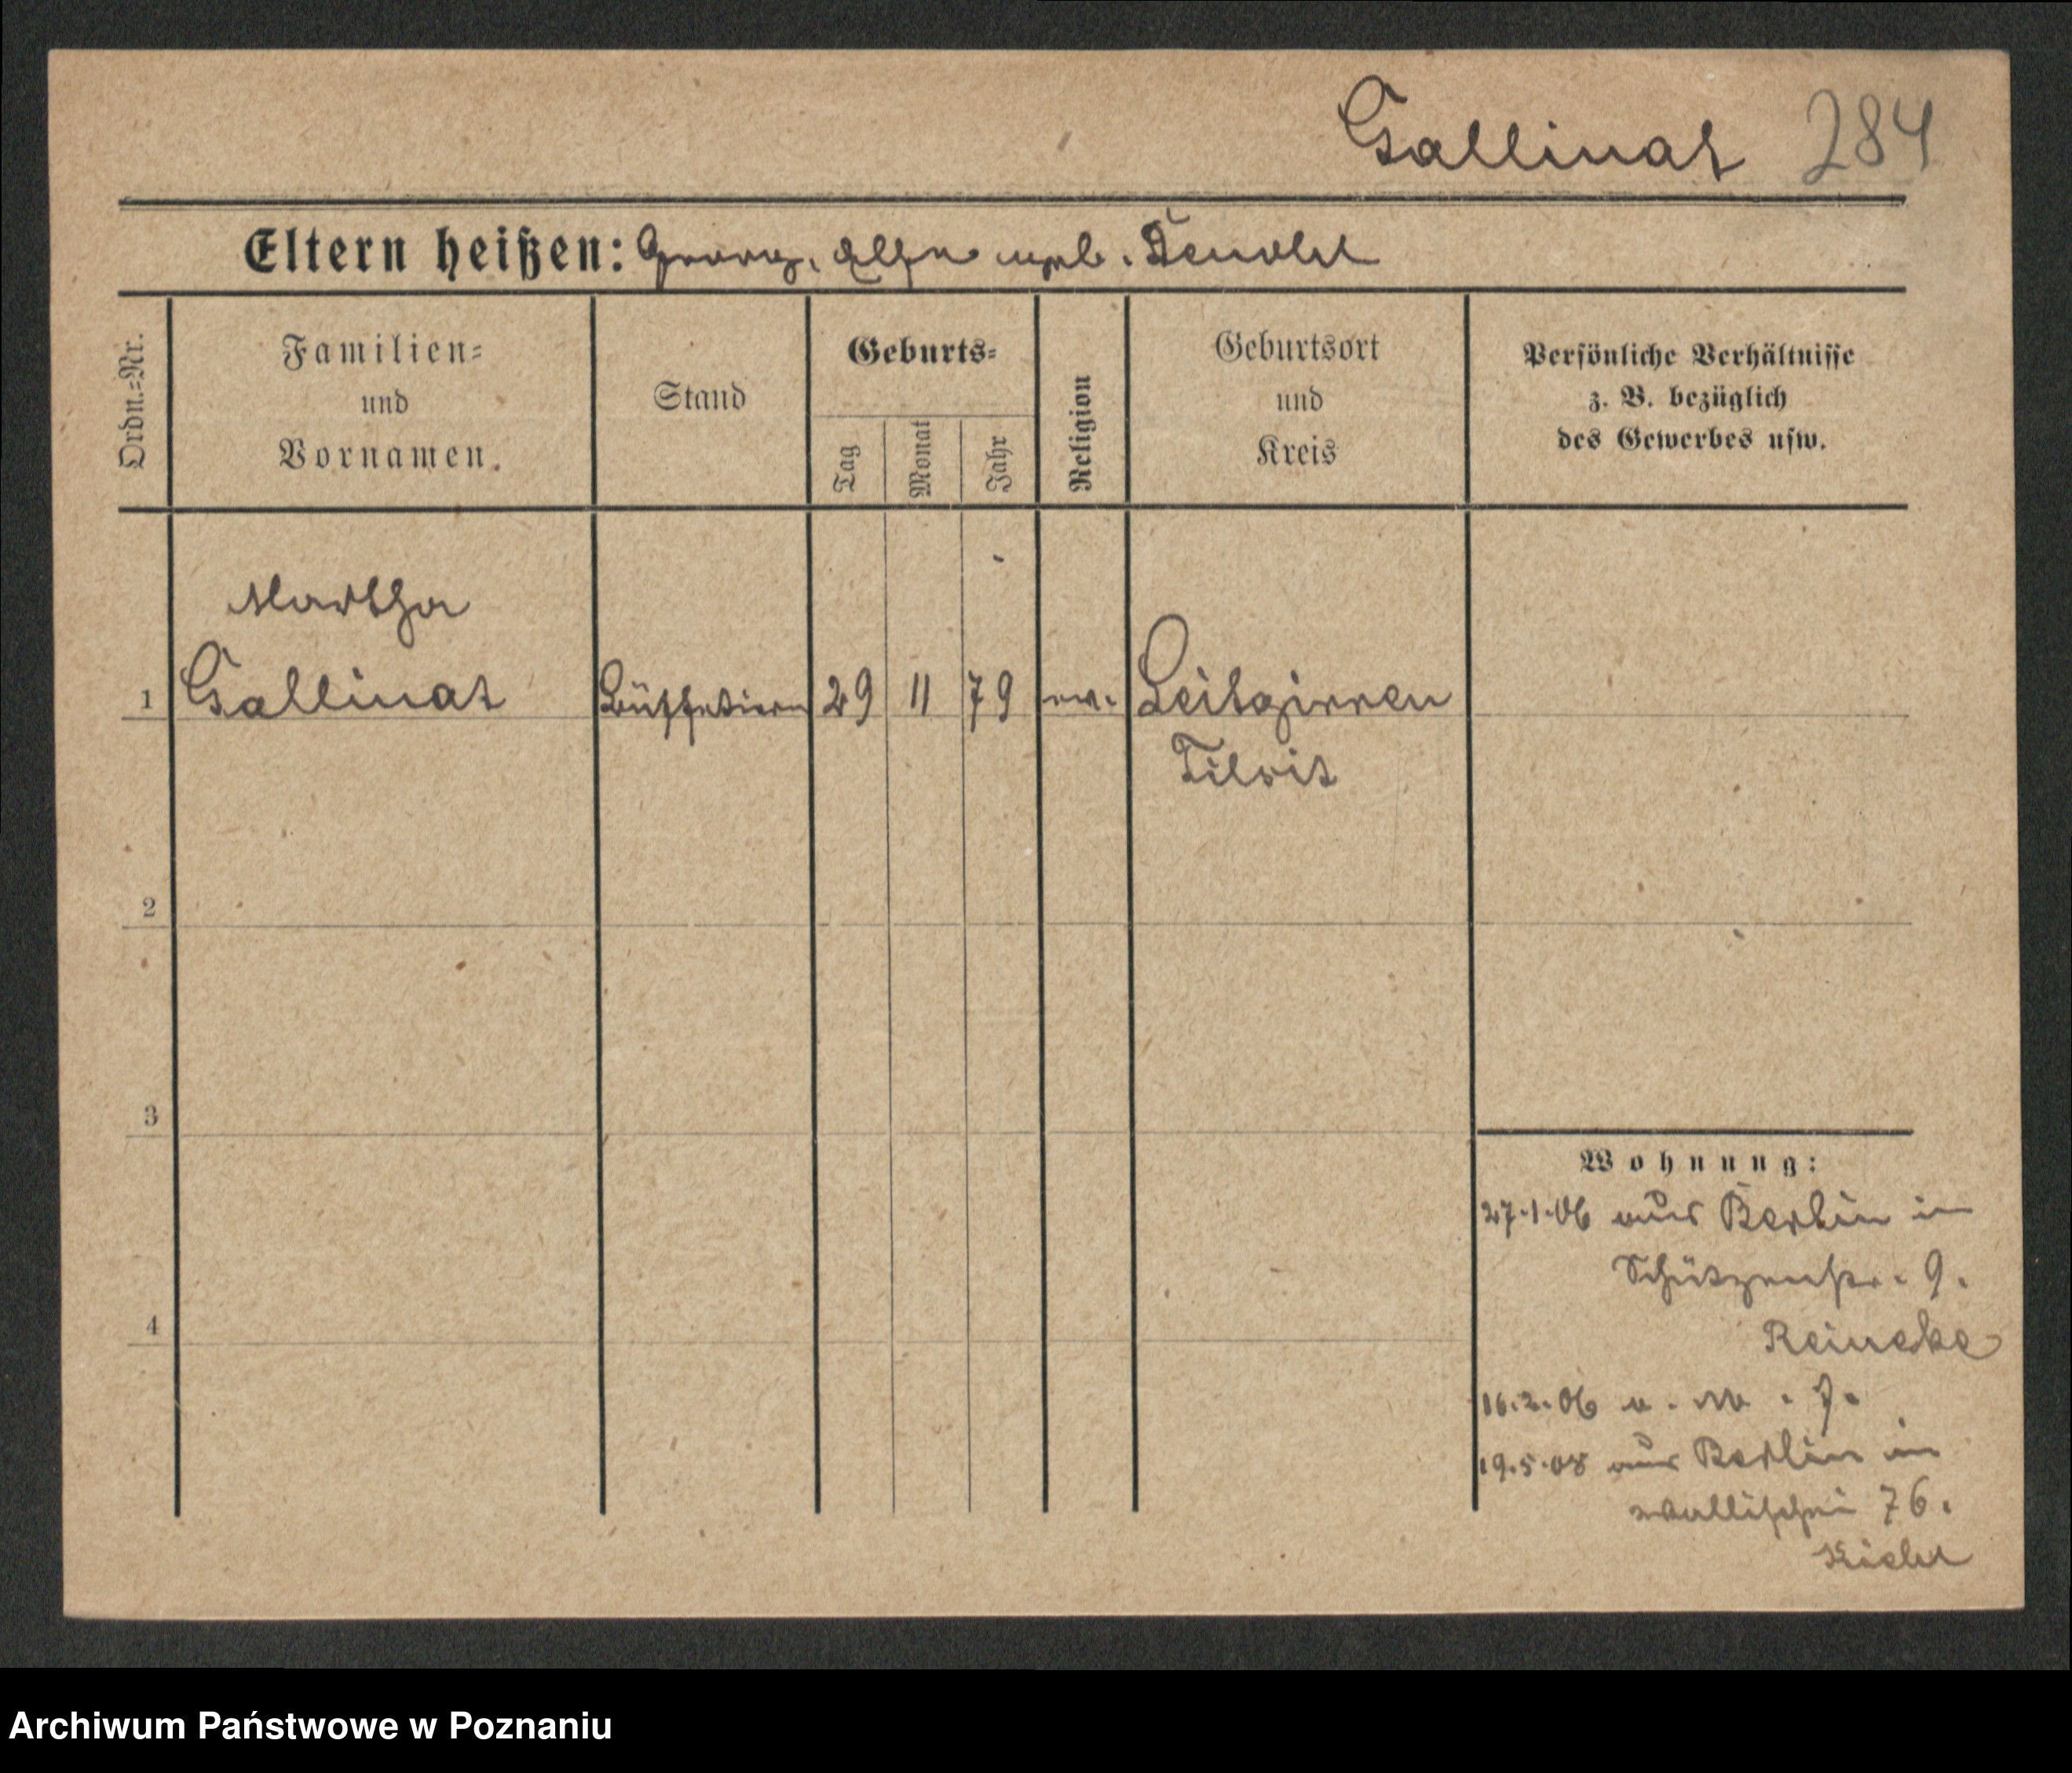 Gallinat 284
Eltern heißen: Georg, Else geb.
Ordn.=Nr.
Familien=
und
Vornamen.
Stand
Geburts=
Tag
Monat
Jahr
Religion
Geburtsort
und
Kreis
Persönliche Verhältnisse
z. B. bezüglich
des Gewerbes usw.
Martha
1 Gallinat Büffetiern 29 11 79 ev. Leitgirren
Tilsit
2
3
4
Wohnung:
27.1.06 aus Berlin in
Schützenstr. 9.
Reineke
16.2.06
19.5.08 aus Berlin in
Wallischei 76.
Archiwum Państwowe w Poznaniu